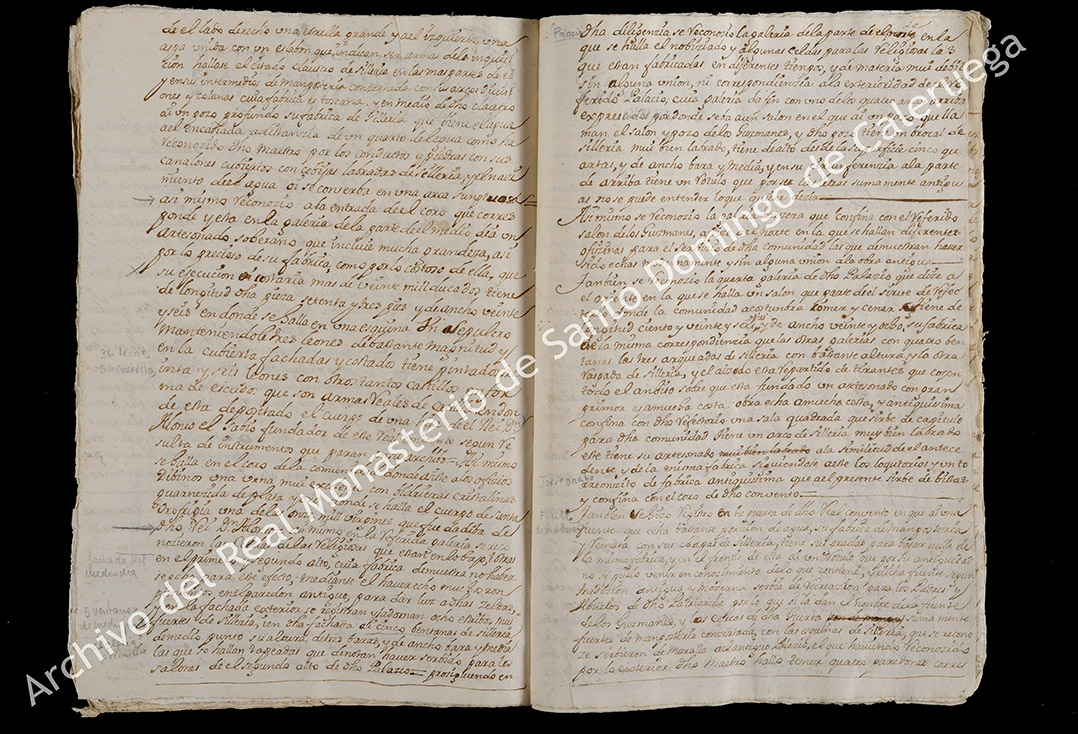 de el lado derecho una estrella grande y a el izquierdo una
unida con un eslabon que indican ser armas de la inquisi
cion hallase el citado claustro de silleria en las mas partes de el
y en su intermedio de manposteria conzertada con sus arcos
y colunas cuia fabrica es toscana, y en medio de dho claustro
ai un pozo profundo su fabrica de silleria que tiene el agua
encañada a distanzia de un quarto de legua como ha
reconozido dho Maestro por los conductos y piedras con sus
canalones cubiertos con cobijas labradas de silleria, y el nazi
miento de el agua oi se conserba en una arca sunptuosa
asi mismo reconozio a la entrada de el coro que corres
ponde y esta en la galeria de la parte de el medio dia un
artesonado soberano, que incluie mucha grandeza, asi
por lo precioso de su fabrica, como por lo costoso de ella, que
su ejecucion costaria mas de veinte mill ducados tiene
de longitud dha pieza setenta y tres pies y de ancho veinte
y seis en donde se halla en una esquina un sepulcro
manteniendole tres leones de bastante magnitud y
en la cubierta fachadas y costado tiene pintados
inta y seis leones con otros tantos castillos
ma de escudo que son armas reales de
de esta depositado el cuerpo de una de el Rei Dn
Alonso el Sabio fundador de este Real segun re
sulta de instrumentos que paran archibo = Asi mismo
se halla en el coro de la comunidad donde asiste a los ofizios
Dibinos una urna mui con vidrieras cristalinas
guarnezida de plata y donde se halla el cuerpo de santa
una de las onze mill virgines que fue dadiba de
dho Rei Dn Alonso mismo en la referida galeria se reco
nozieron las de las religiosas que estan en lo bajo, y otras
en el primero y segundo alto, cuia fabrica demuestra no haber
se echo para este efecto, mediante el haver echo muchos ron
pimientos en el paredon antiguo, para dar luz a dhas zeldas,
la fachada exterior, se registran y adornan otros estribos mui
fuertes de silleria, en dha fachada ai cinco bentanas de silleria
de medio punto su altura de tres baras, y de ancho bara y media
las que se hallan rasgeadas que denotan haver serbido para los
salones de el segundo alto de dho Palazio = prosiguiendo en
36 leones
fachada del
Mediodia
5 ventanas
de medio
Palacio
dha diligenzia se reconozio la galeria de la parte de el norte en la
que se halla el nobiziado y algunas celdas para las religiosas la
que estan fabricadas en diferentes tienpos, y de materia mui debil
sin alguna union, ni correspondienzia a la exterioridad de el re
ferido Palazio, cuia galeria da fin con uno de los quartones arriba
expresados por donde se ba a un salon en el que ai un pozo que lla
man el salon y pozo de los Guzmanes, y dho pozo tiene un brocal de
silleria mui bien labrado, tiene de alto desde la superficie cinco qu
artas, y de ancho bara y media, y en su circunferenzia a la parte
de arriba tiene un rotulo que por ser las letras sumamente antigu
as no se puede entender lo que quiere dezir
Asi mismo se reconozio la galeria que confina con el referido
salon de los Guzmanes, a el norte en la que se hallan diferentes
ofizinas para el serbicio de dha comunidad las que demuestran haver
sido echas modernamente y sin alguna union a la obra antigua
Tanbien se reconozio la quarta galeria de dho Palazio que dize a
el oriente en la que se halla un salon que parte de el sirbe de Refec
torio donde la comunidad acostunbra comer y cenar el tiene de
longitud ciento y veinte y seis pies y de ancho veinte y ocho, su fabrica
es de la misma correspondienzia que las otras galerias con quatro ben
tanas las tres arqueadas de silleria con bastante altura, y la otra
rasgada de silleria, y el alzado esta repartido de tirantes que cojen
todo el anbito sobre que esta fundado un artesonado con gran
primor y a mucha costa, obra echa a mucha costa, y antiquisima
confina con dho refectorio una sala quadrada que sirbe de capitulo
para dha comunidad tiene un arco de silleria mui bien labrado
este tiene su artesonado mui bien labrado a la similitud de el antece
dente y de la misma fabrica siguiendose a este los locutorios y un to
rreonzito de fabrica antiquisima que a el presente sirbe de
y confina con el cerco de dho convento
Tanbien se hizo rexistro en la puerta de dho Real Convento en que ai una
fuente que echa bastante porcion de agua, su fabrica de manposteria
y lenzara con su chapas de silleria, tiene sus gradas para bajar a ella de
la misma fabrica, y en el frontis de ella ai un rotulo que por su antiguedad
no se pudo venir en conocimiento de lo que contiene, y a dicha fuente, segun
tradizion antigua y moderna serbia de recreazion para los Padres y
Abuelos de dho Patriarcha por lo que oi la dan el nonbre de la fuente
de los Guzmanes, y las cercas de dha huerta son de manpos sumamente
fuertes de manposteria conzertada, con las esquinas de silleria, que se recono
ze sirbieron de muralla a el antiguo Palazio, el que haviendo reconozido
por lo exterior dho Maestro hallo tener quatro paredones corres
Palacio
Torreonzito